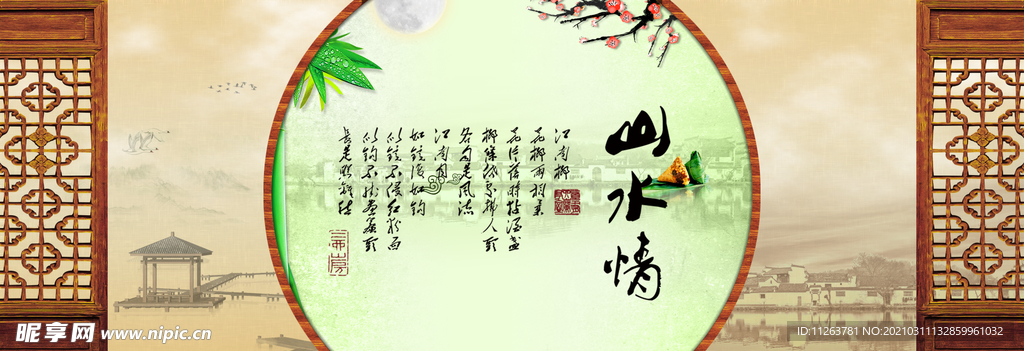 山水情
江南柳
花柳两相柔
花片落时粘酒盏
柳条低处拂人头
各自是风流
江南月
如镜复如钩
似镜不侵红粉面
似钩不挂画帘头
长是照离愁
昵享网 www.nipic.cn
ID:11263781 NO:20210311132859961032